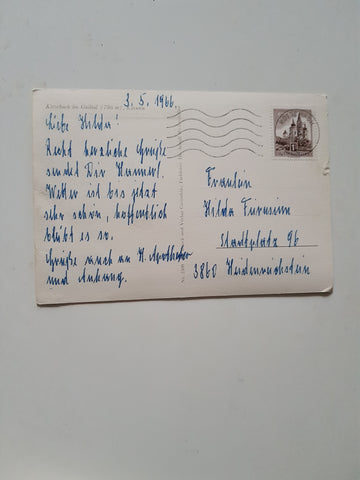 Kötschach im Gailtal (706 m) Kärnten
3. 5. 1966.
Liebe Hilda!
Recht herzliche Grüße
sendet Dir Hammerl.
Wetter ist bis jetzt
sehr schön, hoffentlich
bleibt es so.
Grüße auch an H. Apotheker
und Anhang.
Fräulein
Hilda
Stadtplatz 96
3860 Heidenreichstein